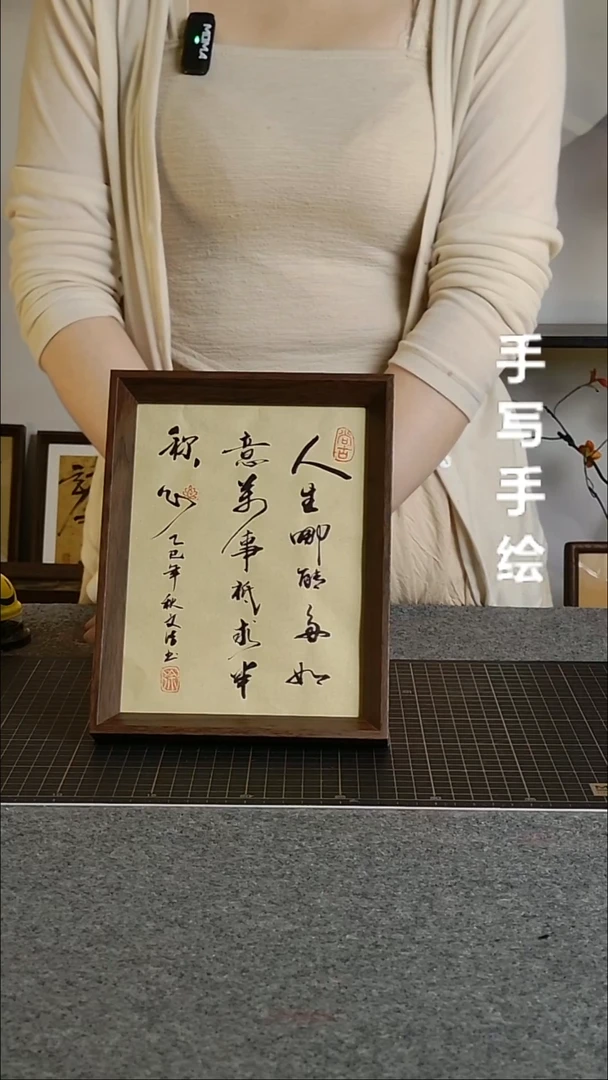 尚古
人生哪能多如
意萬事祇求半
称心
乙巳年秋文
手写手绘
MOMA